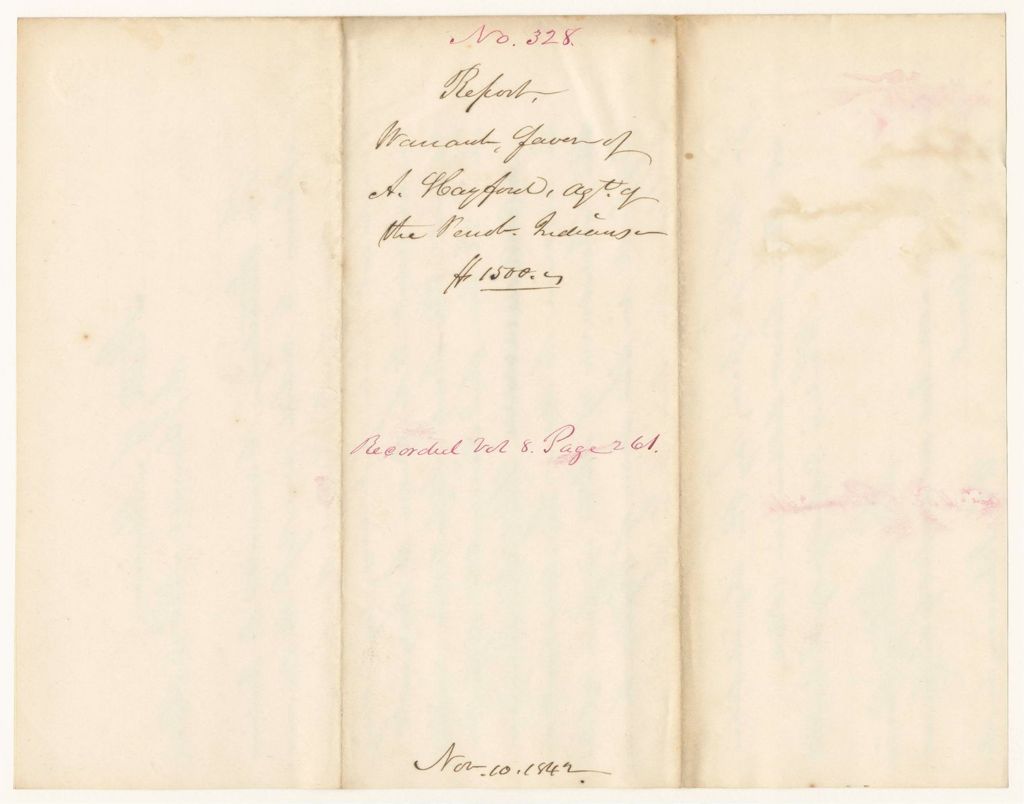 No. 328.
Report,
Warrant, favor of
A. Hayford, agt. of
the Penob. Indians
$1500.
Recorded Vol 8. Page 261.
Nov. 10. 1842